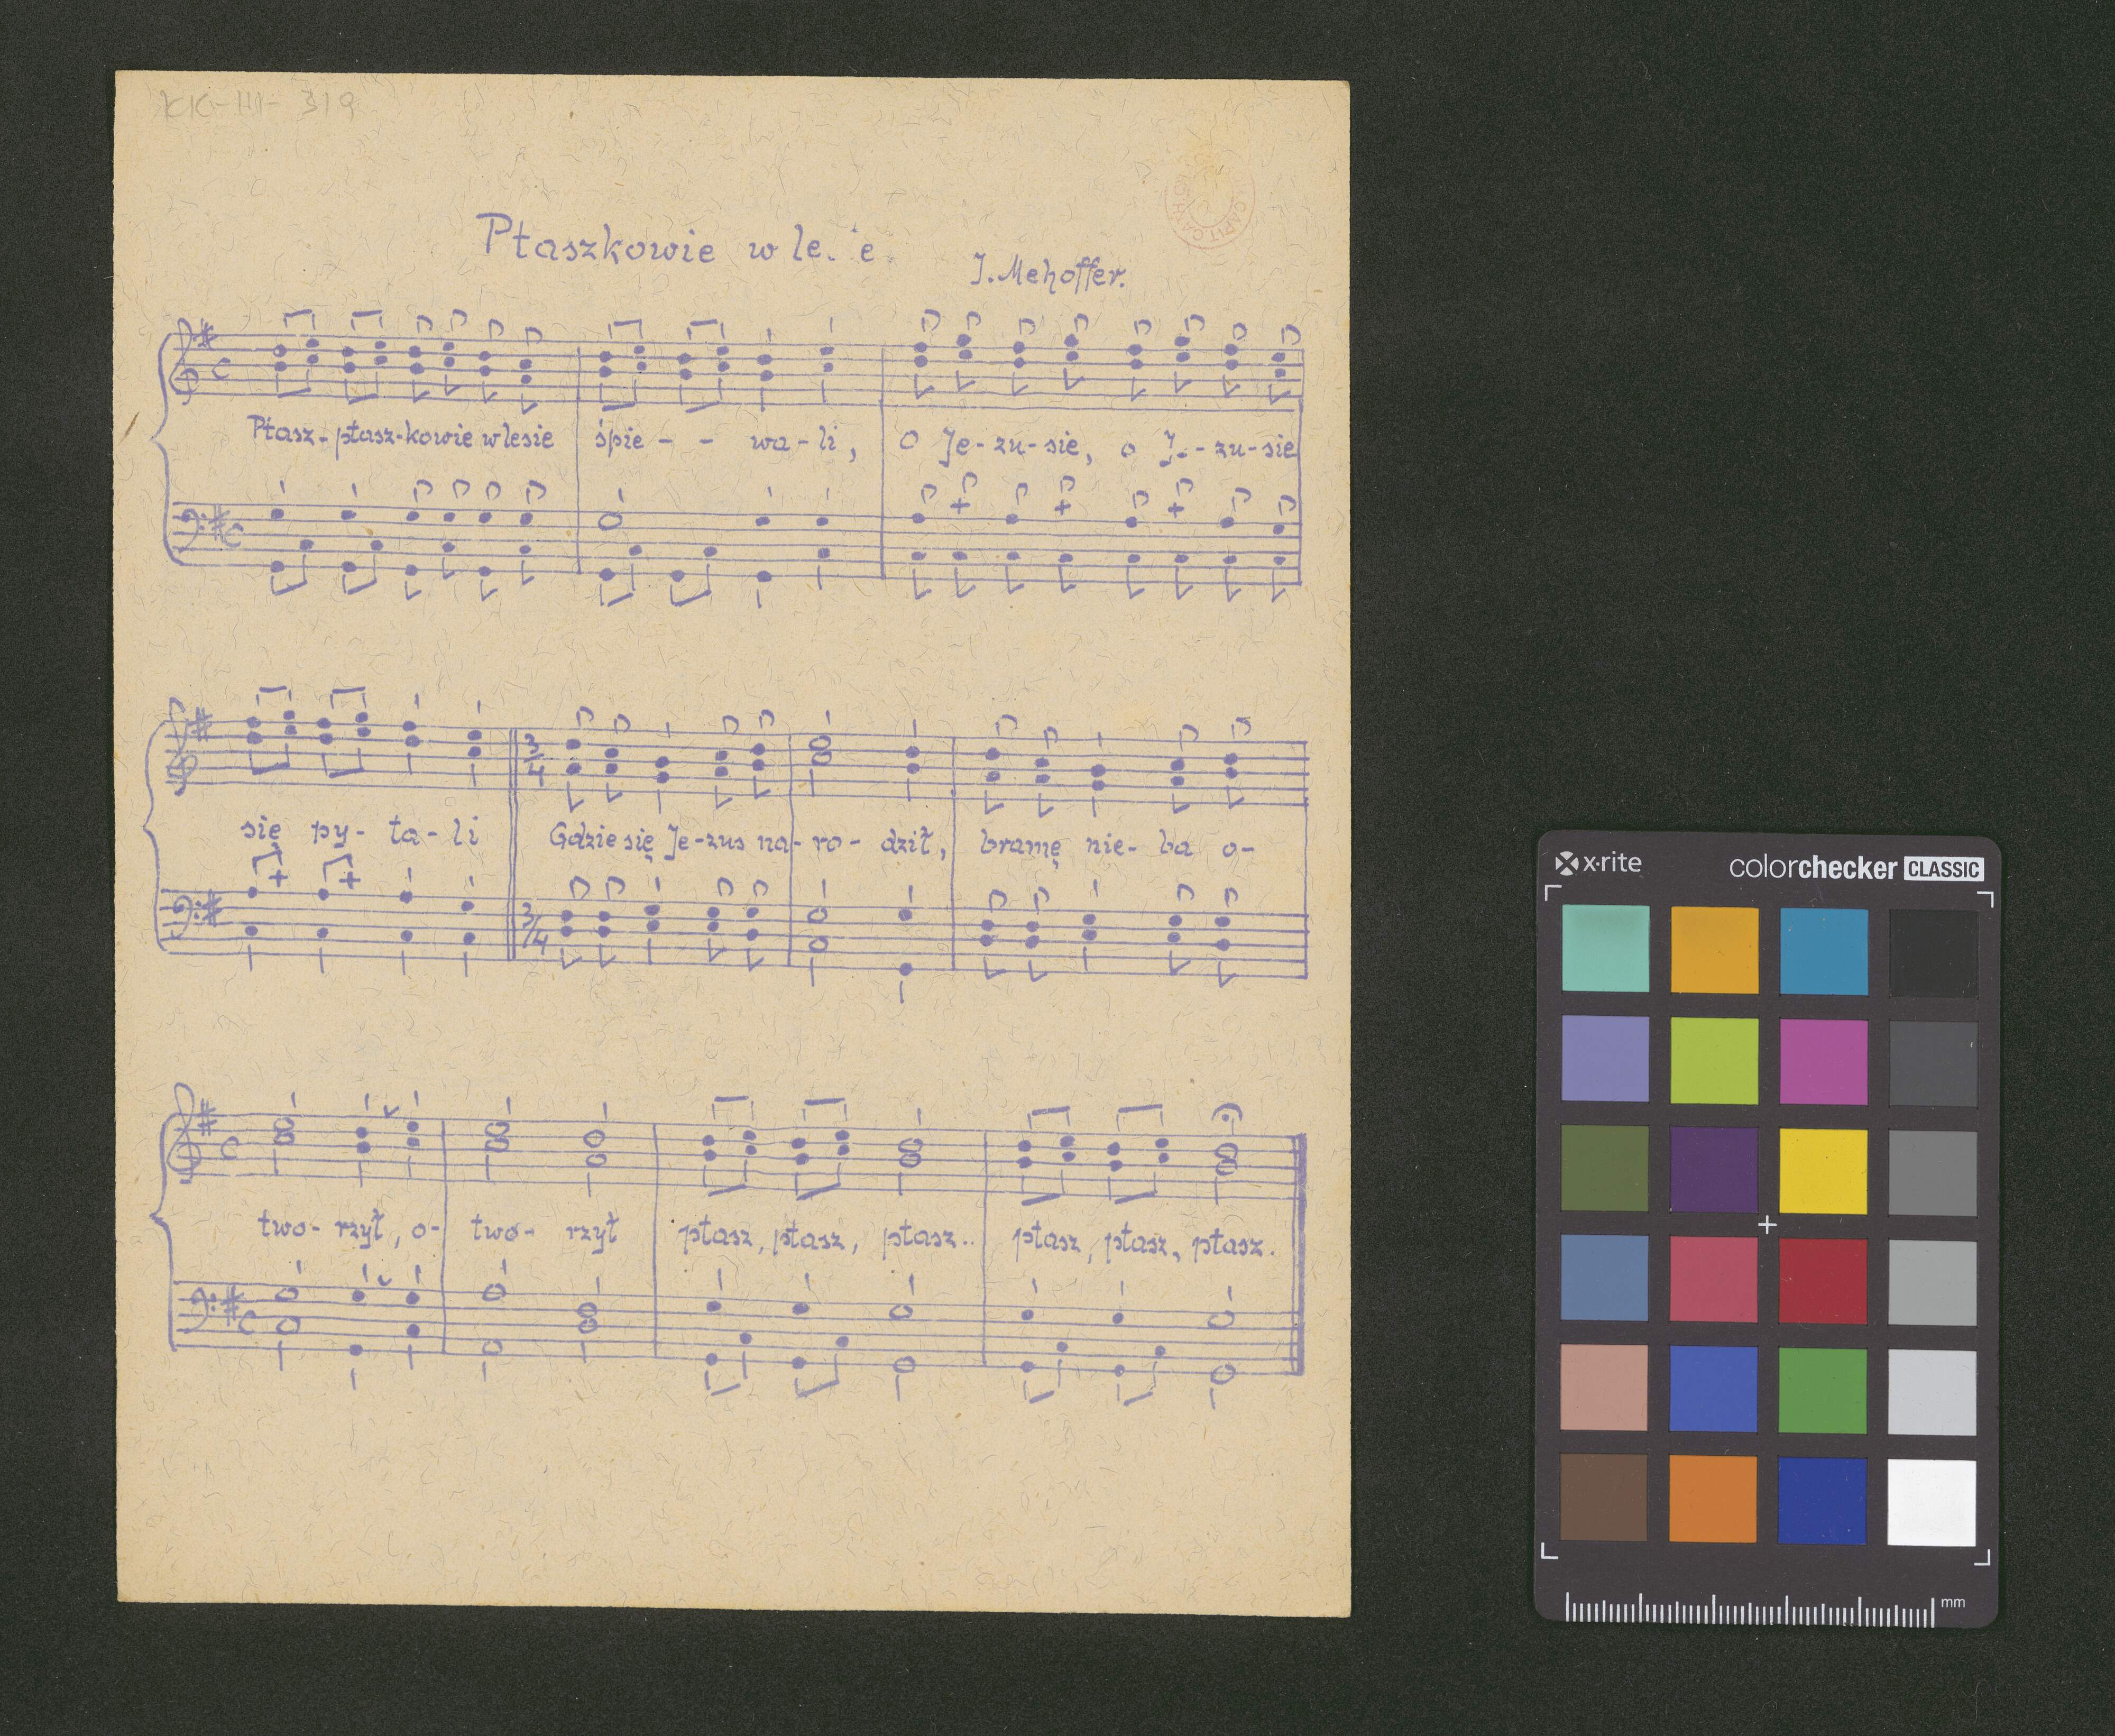 KK-III-319
Ptaszkowie w le. e
J. Mehoffer.
C
Ptasz-ptasz-kowie w lesie śpie - - wa-li, O Je-zu-sie, o J.-zu-sie
C
się py-ta-li Gdzie się Je-zus na-ro-dził, bramę nie-ba o-
3/4
3/4
C
two-rzył, o-two-rzył ptasz, ptasz, ptasz.. ptasz, ptasz, ptasz.
C
x·rite colorchecker CLASSIC
mm